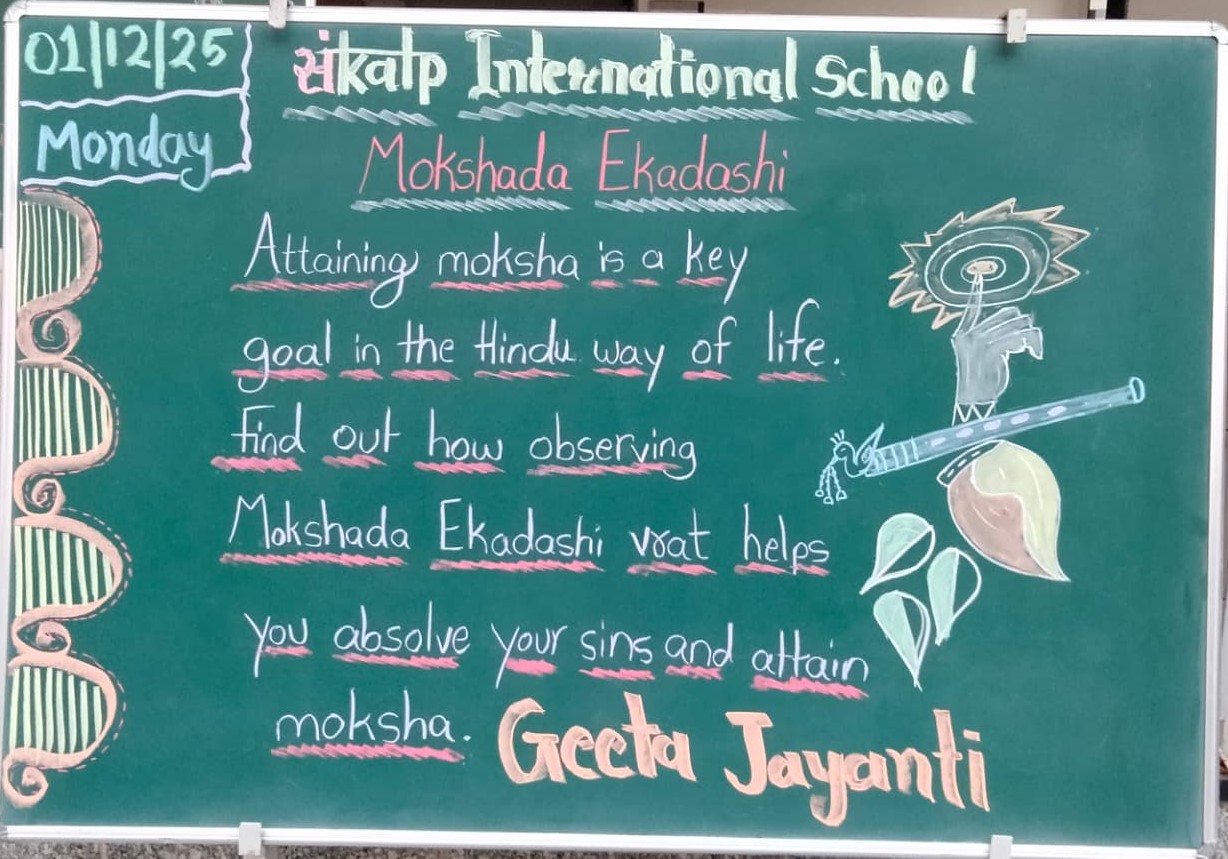 01/12/25
Monday
संkalp International School
Mokshada Ekadashi
Attaining moksha is a key
goal in the Hindu way of life.
Find out how observing
Mokshada Ekadashi vrat helps
you absolve your sins and attain
moksha.
Geeta Jayanti